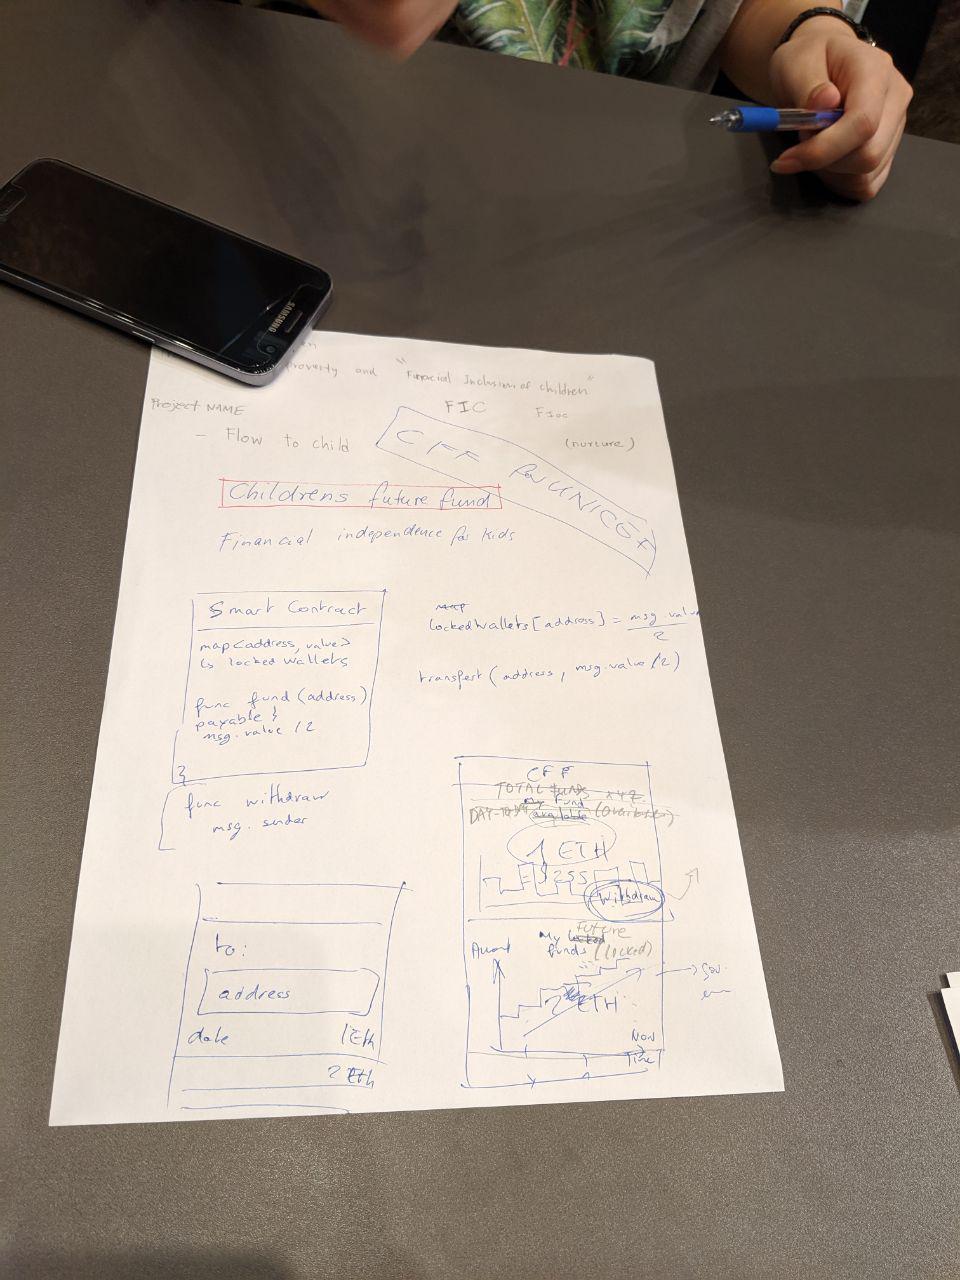 SAMSUNG
poverty and "Financial Inclusion of children"
Project NAME
FIC
- Flow to child
(nurture)
CFF for UNICEF
Childrens future fund
Financial independence for kids
Smart Contract
map<address, value>
locked wallets
func fund (address)
payable }
msg.value /2
}
func withdraw
msg. sender
lockedWallets [address] = msg.value
2
transfer (address, msg.value /2)
to:
address
date 1Eth
2 Eth
CFF
TOTAL FUNDS XYZ
DAY-TO-DAY
My Fund
available
1 ETH
= $255
Withdraw
future
My locked
funds (locked)
2 ETH
Now
Time